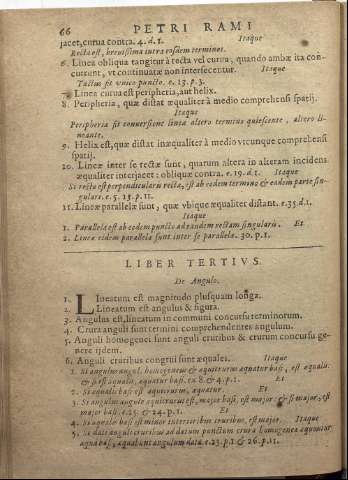 66 PETRI RAMI
jacet, curva contra. 4. d. 1. Itaque
Recta est, brevissima intra eosdem terminos.
6. Linea obliqua tangitur à recta vel curva, quando ambæ ita con-
currunt, vt continuatæ non intersecentur. Itaque
Tactus fit vnico puncto. e. 13. p. 3.
7. Linea curua est peripheria, aut helix.
8. Peripheria, quæ distat æqualiter à medio comprehensi spatij.
Itaque
Peripheria fit conversione lineæ altero termino quiescente, altero li-
neante.
9. Helix est, quæ distat inæqualiter à medio vtcunque comprehensi
spatij.
10. Lineæ inter se rectæ sunt, quarum altera in alteram incidens
æqualiter interjacet: obliquæ contra. e. 19. d. 1. Itaque
Si recta est perpendicularis rectæ, est ab eodem termino & eadem parte sin-
gularis. e. 5. 13. p. 11.
11. Lineæ parallelæ sunt, quæ vbique æqualiter distant. e. 35. d. 1.
Itaque
1. Parallela est ab eodem puncto ad eandem rectam singularis. Et
2. Lineæ eidem parallelæ sunt inter se parallelæ. 30. p. 1.
LIBER TERTIVS.
De Angulo.
1. Lineatum est magnitudo plusquam longa.
2. Lineatum est angulus & figura.
3. Angulus est, lineatum in communi concursu terminorum.
4. Crura anguli sunt termini comprehendentes angulum.
5. Anguli homogenei sunt anguli cruribus & crurum concursu ge-
nere ijdem.
6. Anguli cruribus congrui sunt æquales. Itaque
1. Si angulus angulo homogeneus & æquicrurus æquatur basi, est æqualis:
& si est æqualis, æquatur basi. ex 8 & 4. p. 1. Et
2. Si æqualis basi est æquicrurus, æquatur. Et
3. Si angulus angulo æquicrurus est, major basi, est major: & si major, est
major basi. e. 25. & 24. p. 1. Et
4. Si æqualis basi est minor interioribus cruribus, est major. Itaque
5. Si dati anguli cruribus ad datum punctum crura homogenea æquentur
æqua basi, æquabunt angulum datū. e. 23. p. 1 & 26. p. 11.